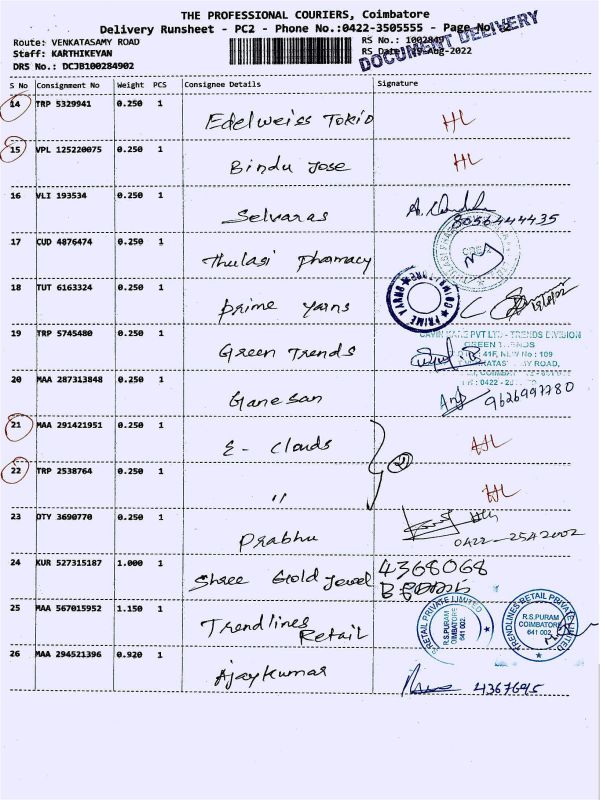 THE PROFESSIONAL COURIERS, Coimbatore
Delivery Runsheet - PC2 - Phone No.:0422-3505555 - Page No.
Route: VENKATASAMY ROAD
RS No.: 1002849
Staff: KARTHIKEYAN
RS Date: -Aug-2022
DRS No.: DCJB100284902
DOCUMENT DELIVERY
S No Consignment No Weight PCS Consignee Details Signature
14 TRP 5329941 0.250 1 Edelweiss Tokio HL
15 VPL 125220075 0.250 1 Bindu Jose HL
16 VLI 193534 0.250 1 Selvaras 8056444435
17 CUD 4876474 0.250 1 Thulasi Pharmacy
18 TUT 6163324 0.250 1 Prime Yarns
PRIME YARNS
19 TRP 5745480 0.250 1 Green Trends
PVT LTD - TRENDS DIVISION
GREEN TRENDS
41F, NEW No : 109
ROAD,
20 MAA 287313848 0.250 1 Ganesan 9626997780
21 MAA 291421951 0.250 1 E- Clouds HL
22 TRP 2538764 0.250 1 " 2 HL
23 DTY 3690770 0.250 1 Prabhu
0422-2542002
24 KUR 527315187 1.000 1 Shree Gold Jewel 4368068
25 MAA 567015952 1.150 1 Trendlines Retail
RETAIL PRIVATE LIMITED
R.S.PURAM
COIMBATORE
641 002.
TRENDLINES RETAIL PRIVATE LIMITED
R.S.PURAM
COIMBATORE
641 002.
26 MAA 294521396 0.920 1 Ajaykumar 4367695